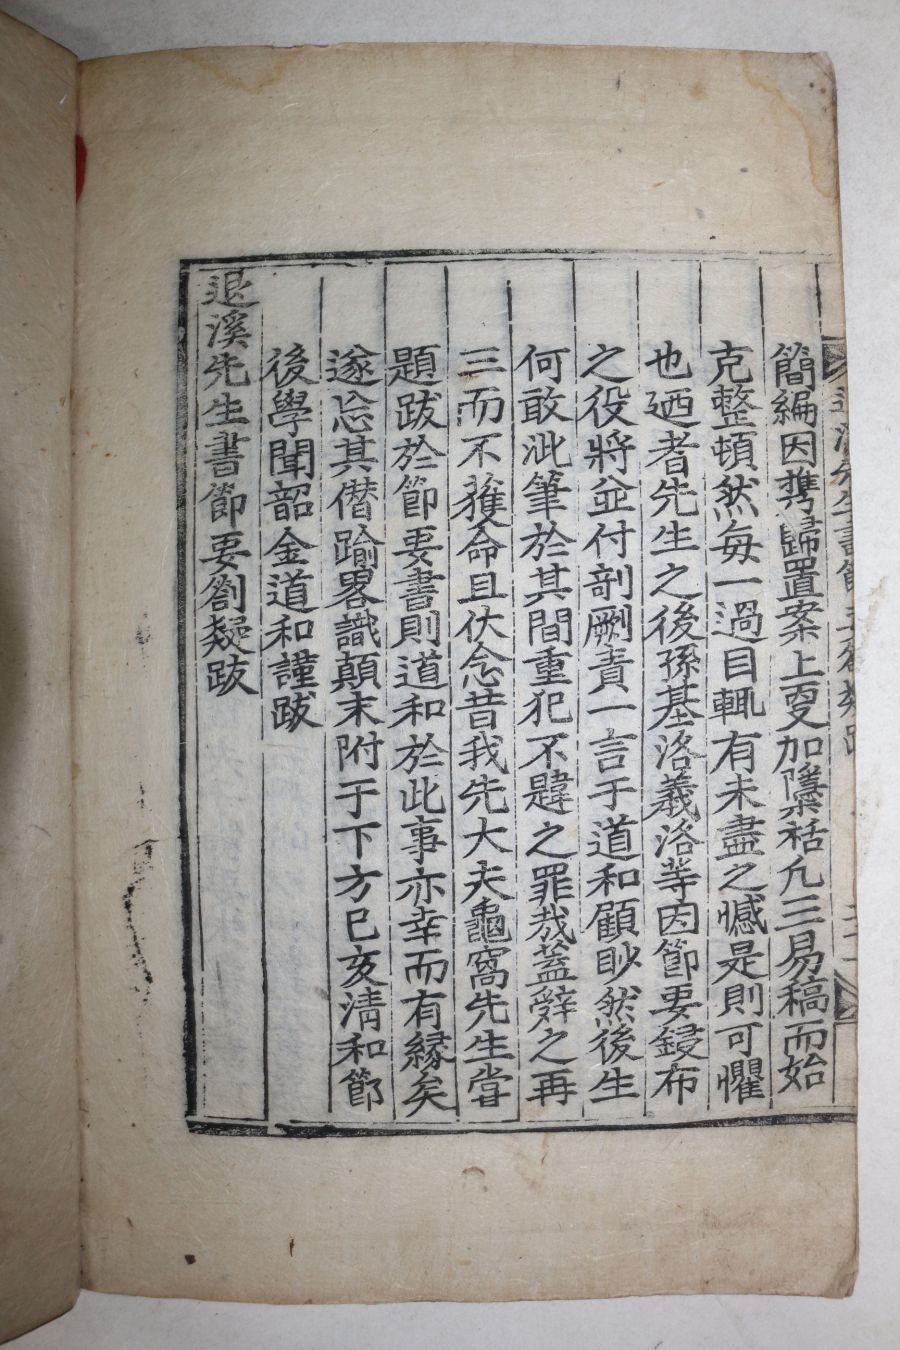 簡編因攜歸置案上更加櫽栝凢三易稿而始
克整頓然每一過目輒有未盡之憾是則可懼
也廼者先生之後孫基洛義洛等因節要鋟布
之役將並付剞劂責一言于道和顧眇然後生
何敢泚筆於其間重犯不韙之罪哉蓋辭之再
三而不獲命且伏念昔我先大夫龜窩先生嘗
題跋於節要書則道和於此事亦幸而有緣矣
遂忘其僭踰畧識顛末附于下方巳亥淸和節
後學聞韶金道和謹跋
退溪先生書節要劄疑跋